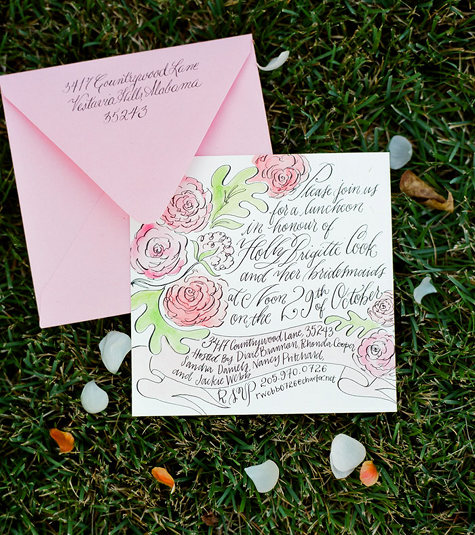 3417 Countrywood Lane
Vestavia Hills, Alabama
35243
Please join us
for a luncheon
in honour of
Holly Brigitte Cook
and her bridesmaids
at Noon
on the 29th of October
3417 Countrywood Lane, 35243
Hosted By Brannan, Rhonda Cooper,
Sandra Daniels, Nancy Pritchard,
and Jackie Webb
RSVP 205.970.0726